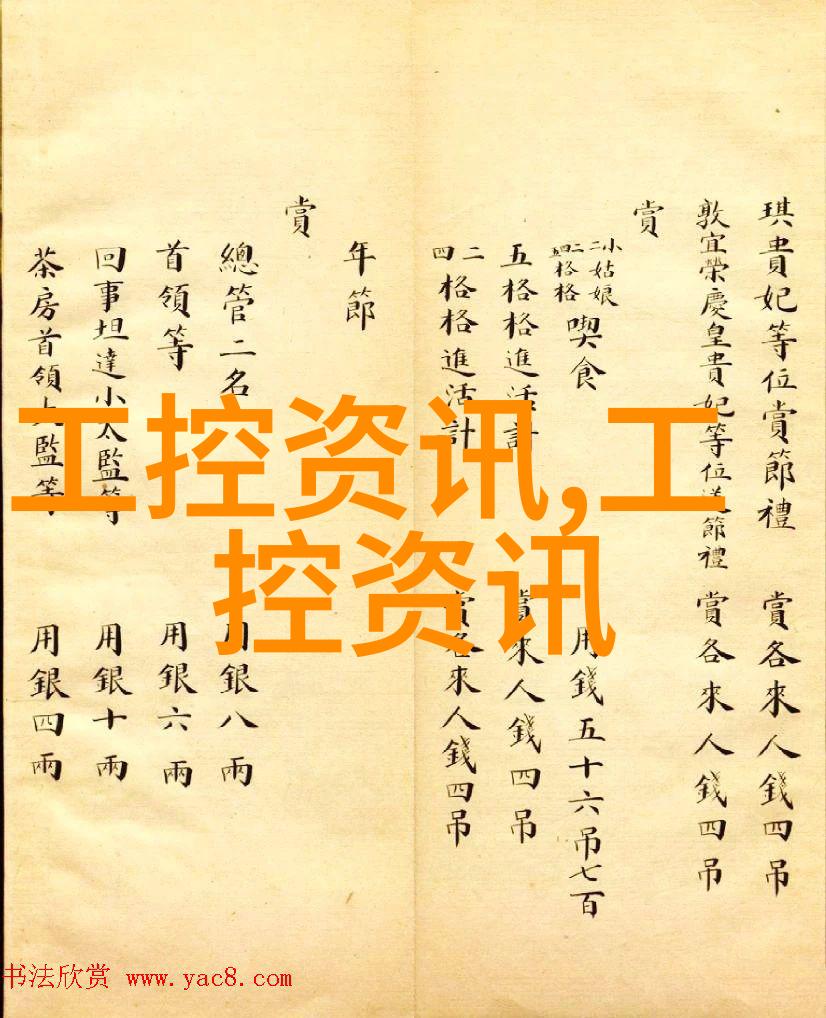 琪貴妃等位賞節禮 賞各來人錢四吊
敦宜榮慶皇貴妃等位送節禮 賞各來人錢四吊
賞
小姑娘
二二格格
四格格
喫食 用錢五十六吊七百
五格格進活計 賞來人錢四吊
二
四格格進活計 賞各來人錢四吊
年節
賞
總管二名 用銀八兩
首領等 用銀六兩
回事坦達小太監等 用銀十兩
茶房首領太監等 用銀四兩
工控资讯,工
控资讯
书法欣赏 www.yac8.com